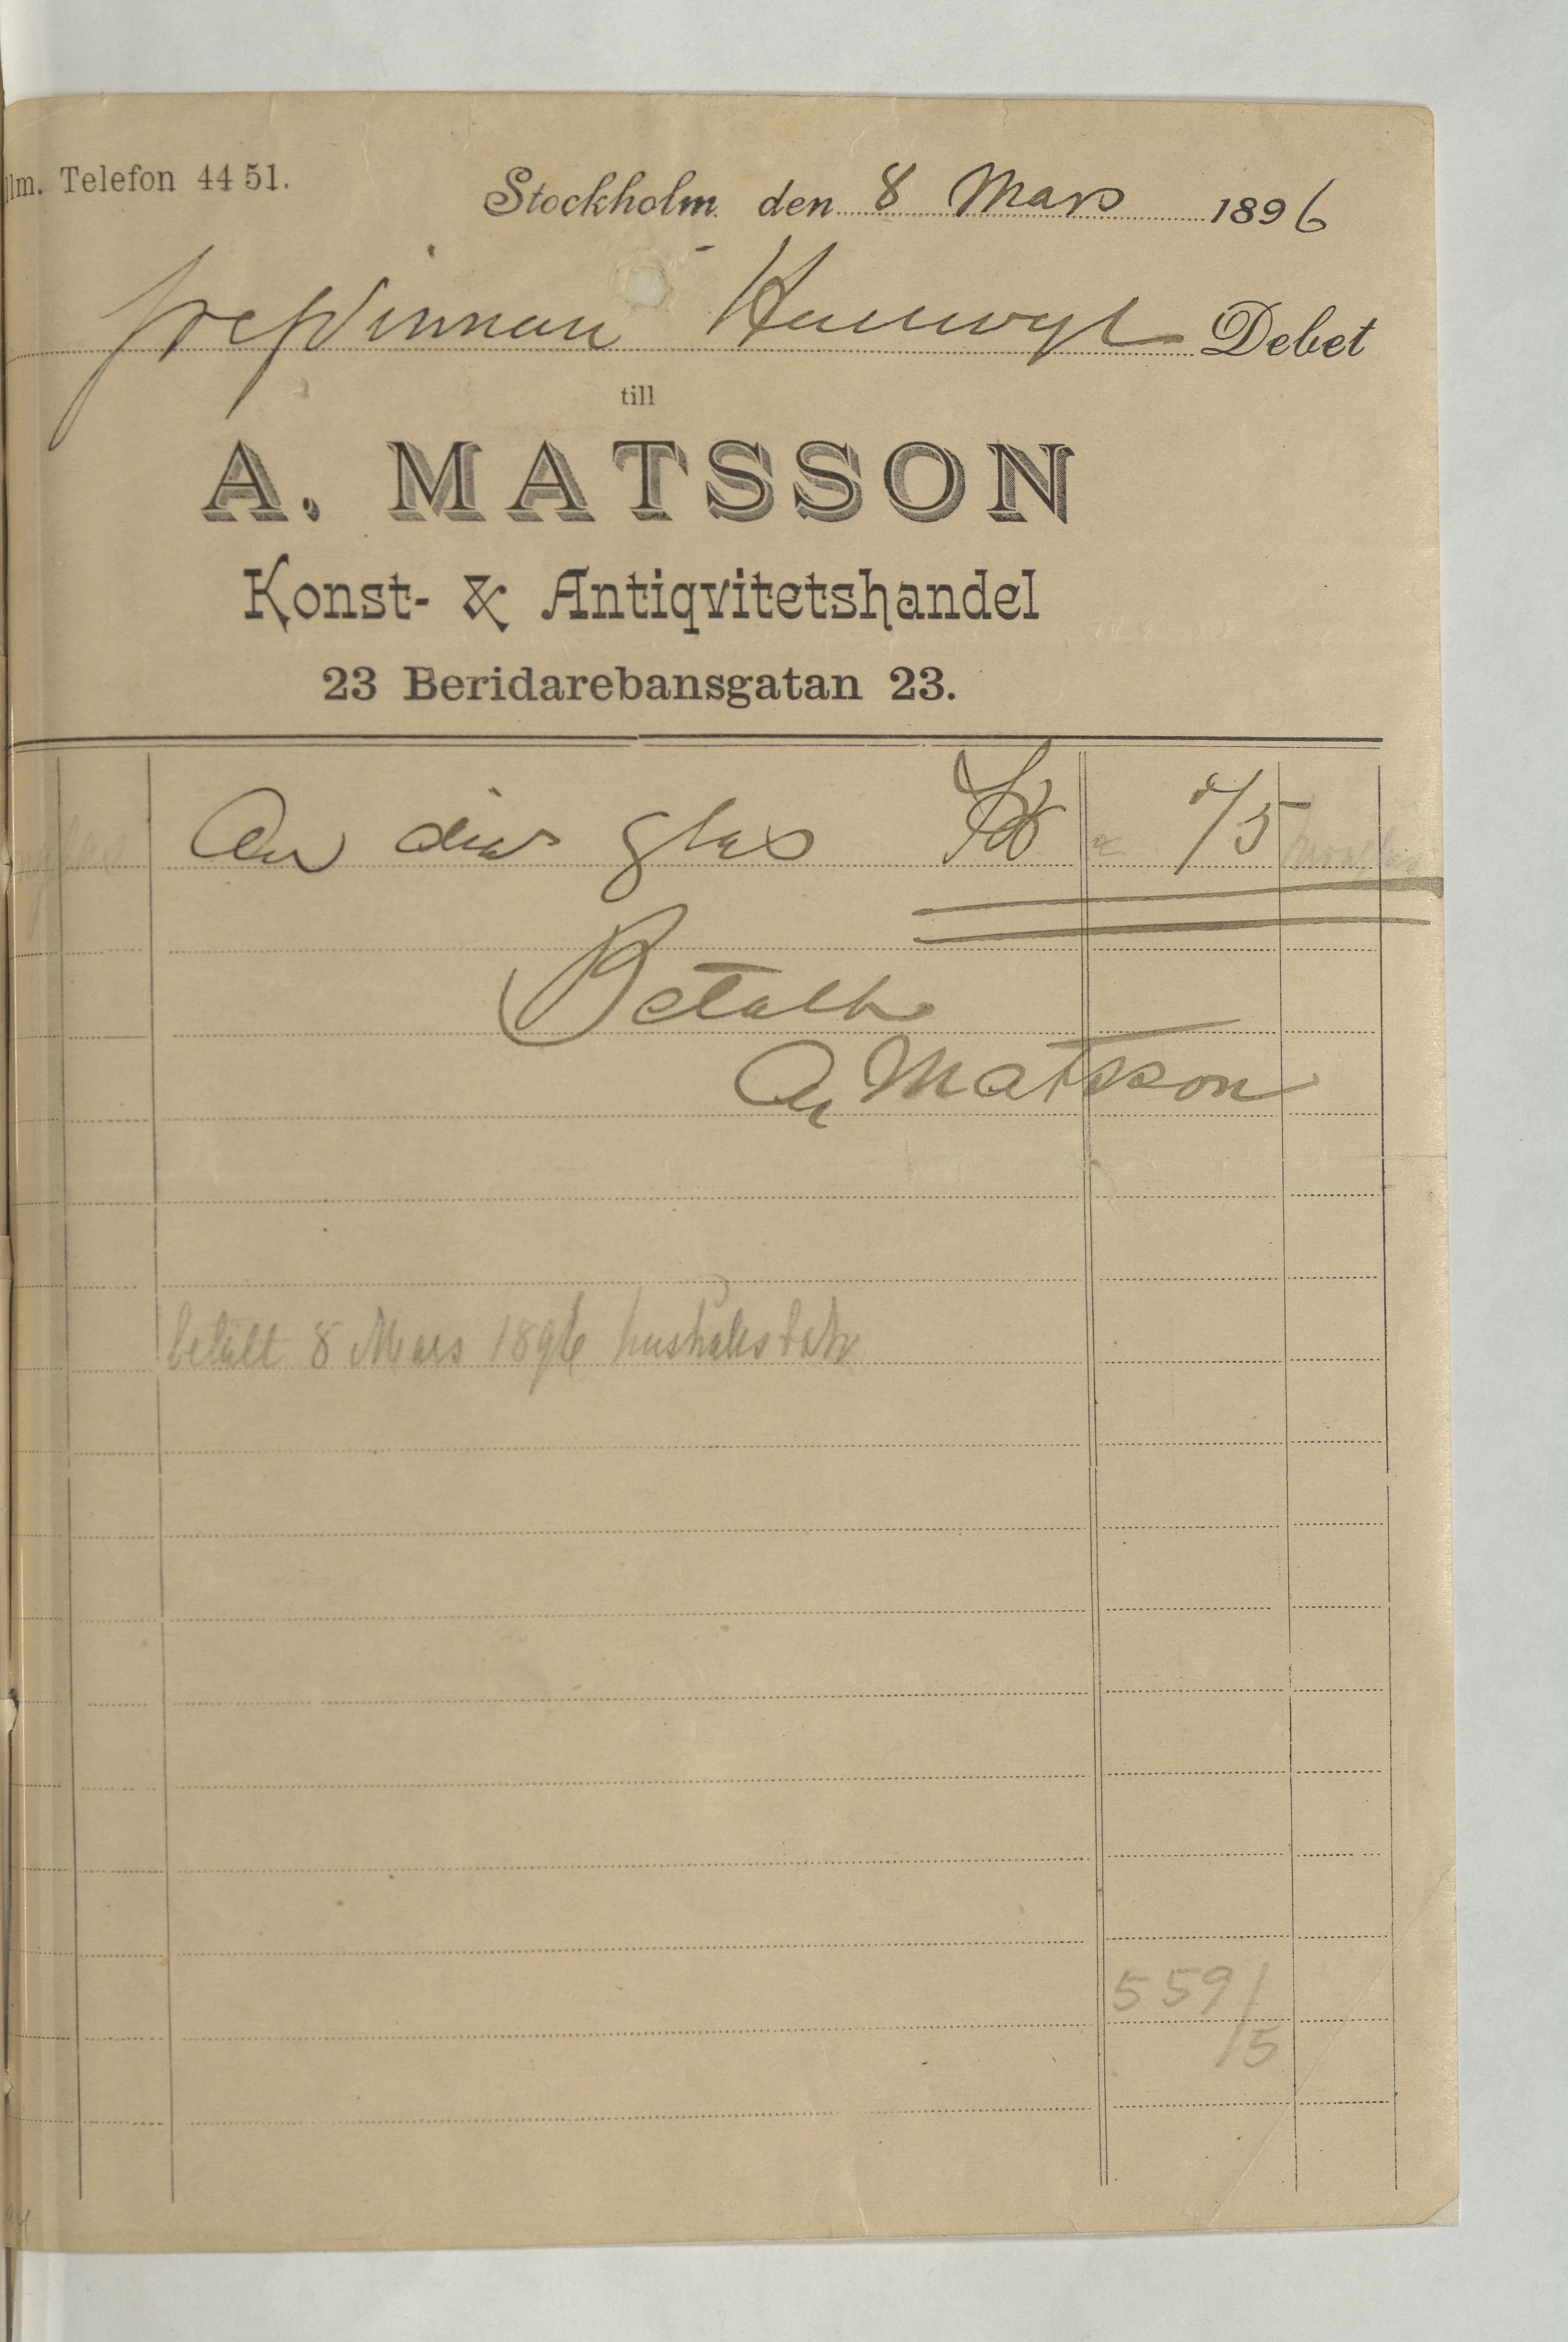 lm. Telefon 44 51.
Stockholm den 8 Mars 1896
Grefvinnan Hallwyl Debet
till
A. MATSSON
Konst- & Antiqvitetshandel
23 Beridarebansgatan 23.
glas 75
Betalt
A Matsson
betalt 8 Mars 1896
559/5